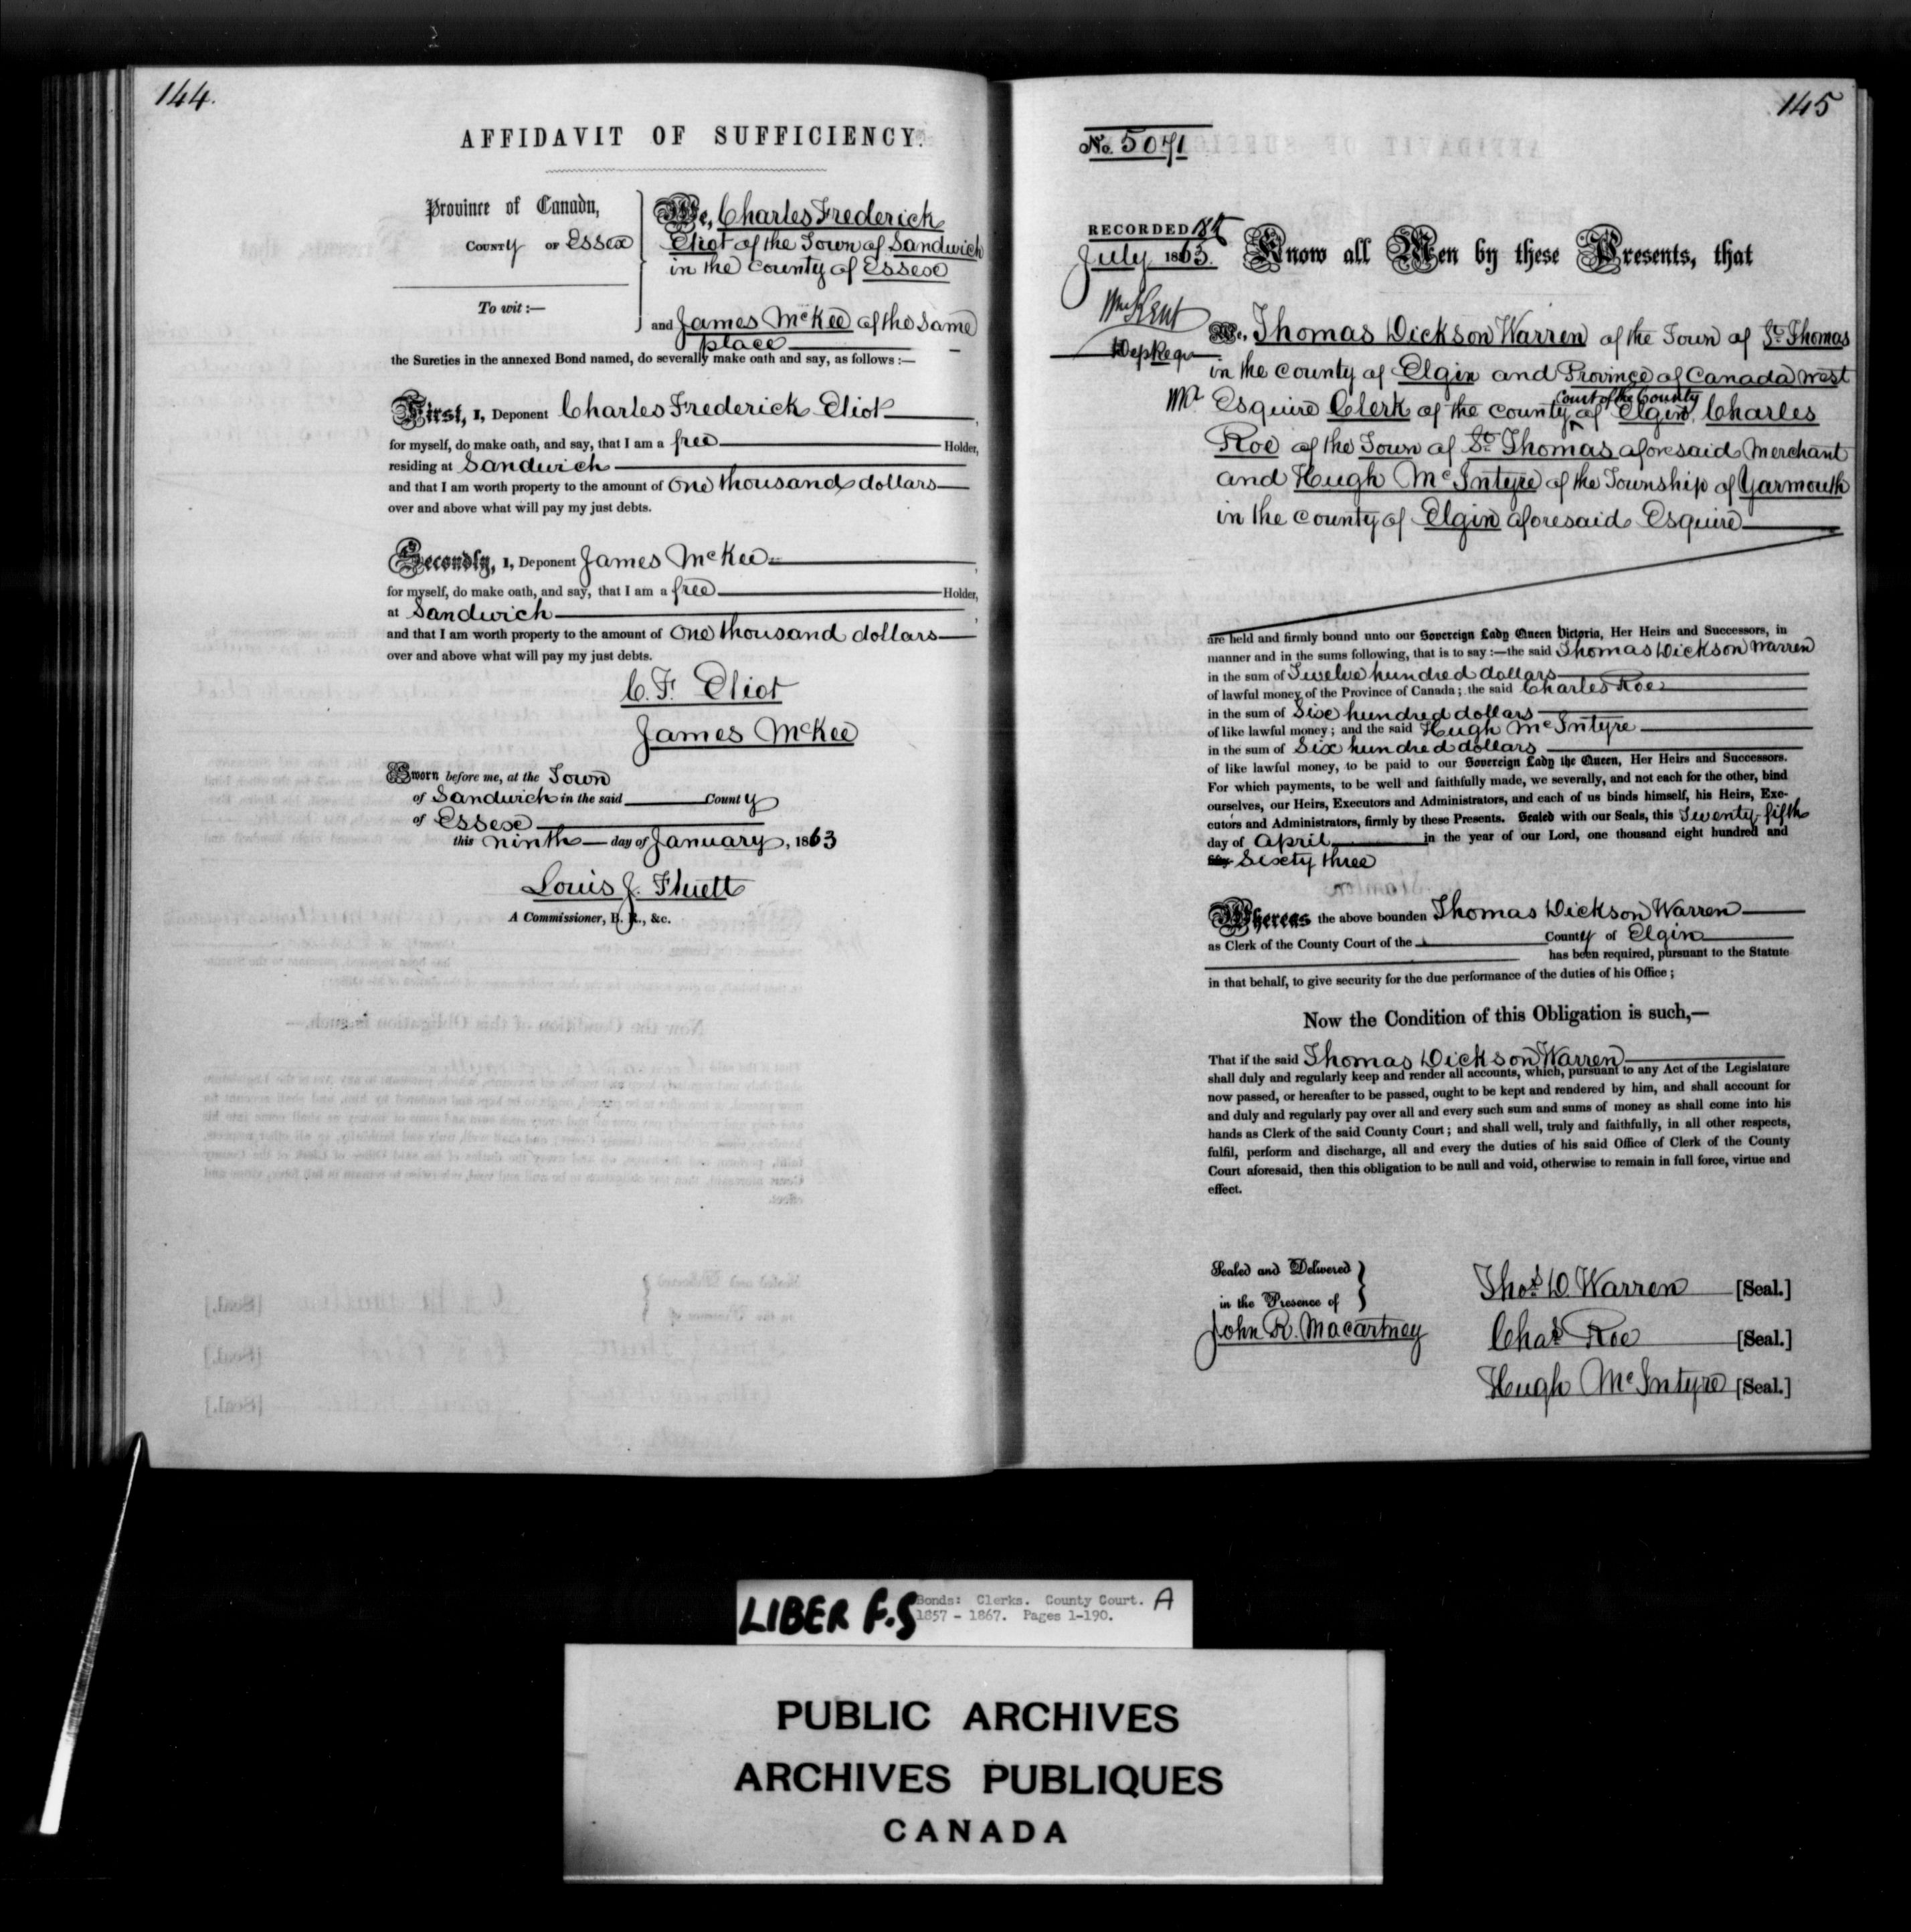 144.
AFFIDAVIT OF SUFFICIENCY.
Province of Canada,
COUNTY OF Essex
To wit :—
We, Charles Frederick
Eliot of the Town of Sandwich
in the county of Essex
and James McKee of the same
place
the Sureties in the annexed Bond named, do severally make oath and say, as follows :—
First, I, Deponent Charles Frederick Eliot,
for myself, do make oath, and say, that I am a free Holder,
residing at Sandwich
and that I am worth property to the amount of One thousand dollars
over and above what will pay my just debts.
Secondly, I, Deponent James McKee,
for myself, do make oath, and say, that I am a free Holder,
at Sandwich,
and that I am worth property to the amount of One thousand dollars
over and above what will pay my just debts.
C. F. Eliot
James McKee
Sworn before me, at the Town
of Sandwich in the said County
of Essex
this ninth day of January, 1863
Louis J. Fluett
A Commissioner, B. R., &c.
145
No. 5071
RECORDED 18th
July 1863.
Wm Kent
Dep Regr
Know all Men by these Presents, that
We, Thomas Dickson Warren of the Town of St. Thomas
in the county of Elgin and Province of Canada West
Court of the County
Esquire Clerk of the county of Elgin, Charles
Roe of the Town of St. Thomas aforesaid Merchant
and Hugh McIntyre of the Township of Yarmouth
in the county of Elgin aforesaid Esquire
are held and firmly bound unto our Sovereign Lady Queen Victoria, Her Heirs and Successors, in
manner and in the sums following, that is to say :—the said Thomas Dickson Warren
in the sum of Twelve hundred dollars
of lawful money of the Province of Canada ; the said Charles Roe
in the sum of Six hundred dollars
of like lawful money ; and the said Hugh McIntyre
in the sum of Six hundred dollars
of like lawful money, to be paid to our Sovereign Lady the Queen, Her Heirs and Successors.
For which payments, to be well and faithfully made, we severally, and not each for the other, bind
ourselves, our Heirs, Executors and Administrators, and each of us binds himself, his Heirs, Exe-
cutors and Administrators, firmly by these Presents. Sealed with our Seals, this Twenty fifth
day of April in the year of our Lord, one thousand eight hundred and
Sixty three
Whereas the above bounden Thomas Dickson Warren
as Clerk of the County Court of the County of Elgin
has been required, pursuant to the Statute
in that behalf, to give security for the due performance of the duties of his Office ;
Now the Condition of this Obligation is such,—
That if the said Thomas Dickson Warren
shall duly and regularly keep and render all accounts, which, pursuant to any Act of the Legislature
now passed, or hereafter to be passed, ought to be kept and rendered by him, and shall account for
and duly and regularly pay over all and every such sum and sums of money as shall come into his
hands as Clerk of the said County Court ; and shall well, truly and faithfully, in all other respects,
fulfil, perform and discharge, all and every the duties of his said Office of Clerk of the County
Court aforesaid, then this obligation to be null and void, otherwise to remain in full force, virtue and
effect.
Sealed and Delivered
in the Presence of
John R. Macartney
Thos. D. Warren [Seal.]
Chas Roe [Seal.]
Hugh McIntyre [Seal.]
LIBER F.S
Bonds: Clerks. County Court. A
1857 - 1867. Pages 1-190.
PUBLIC ARCHIVES
ARCHIVES PUBLIQUES
CANADA